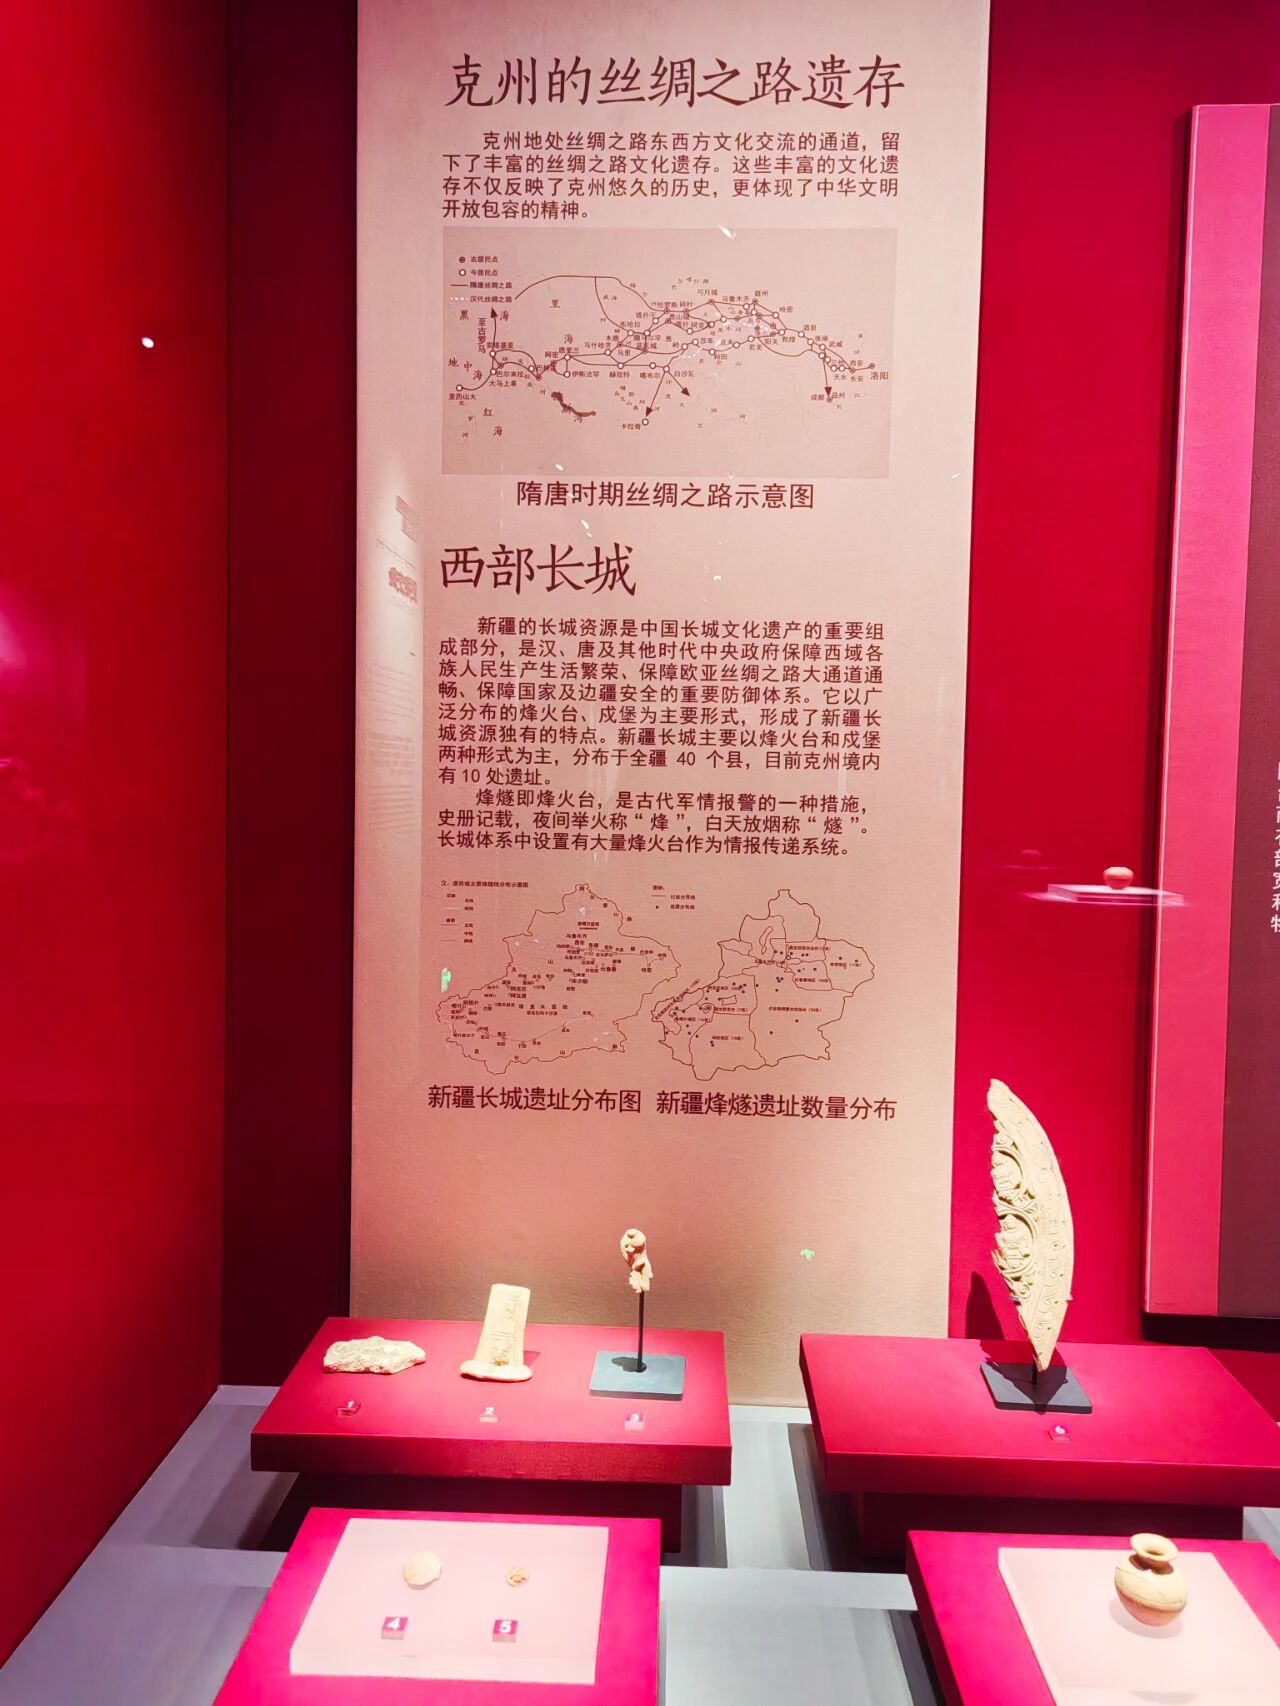 克州的丝绸之路遗存
克州地处丝绸之路东西方文化交流的通道，留
下了丰富的丝绸之路文化遗存。这些丰富的文化遗
存不仅反映了克州悠久的历史，更体现了中华文明
开放包容的精神。
古居民点
今居民点
隋唐丝绸之路
汉代丝绸之路
黑海
里海
地中海
红海
至古罗马
亚历山大
大马士革
伊斯法罕
赫拉特
喀布尔
白沙瓦
卡拉奇
布哈拉
碎叶
弓月城
乌鲁木齐
庭州
哈密
莎车
和田
若羌
阳关
敦煌
酒泉
张掖
武威
兰州
天水
西安
长安
洛阳
成都
益州
隋唐时期丝绸之路示意图
西部长城
新疆的长城资源是中国长城文化遗产的重要组
成部分，是汉、唐及其他时代中央政府保障西域各
族人民生产生活繁荣、保障欧亚丝绸之路大通道通
畅、保障国家及边疆安全的重要防御体系。它以广
泛分布的烽火台、戍堡为主要形式，形成了新疆长
城资源独有的特点。新疆长城主要以烽火台和戍堡
两种形式为主，分布于全疆 40 个县，目前克州境内
有 10 处遗址。
烽燧即烽火台，是古代军情报警的一种措施，
史册记载，夜间举火称“烽”，白天放烟称“燧”。
长城体系中设置有大量烽火台作为情报传递系统。
新疆长城遗址分布图 新疆烽燧遗址数量分布
1
2
3
6
4
5